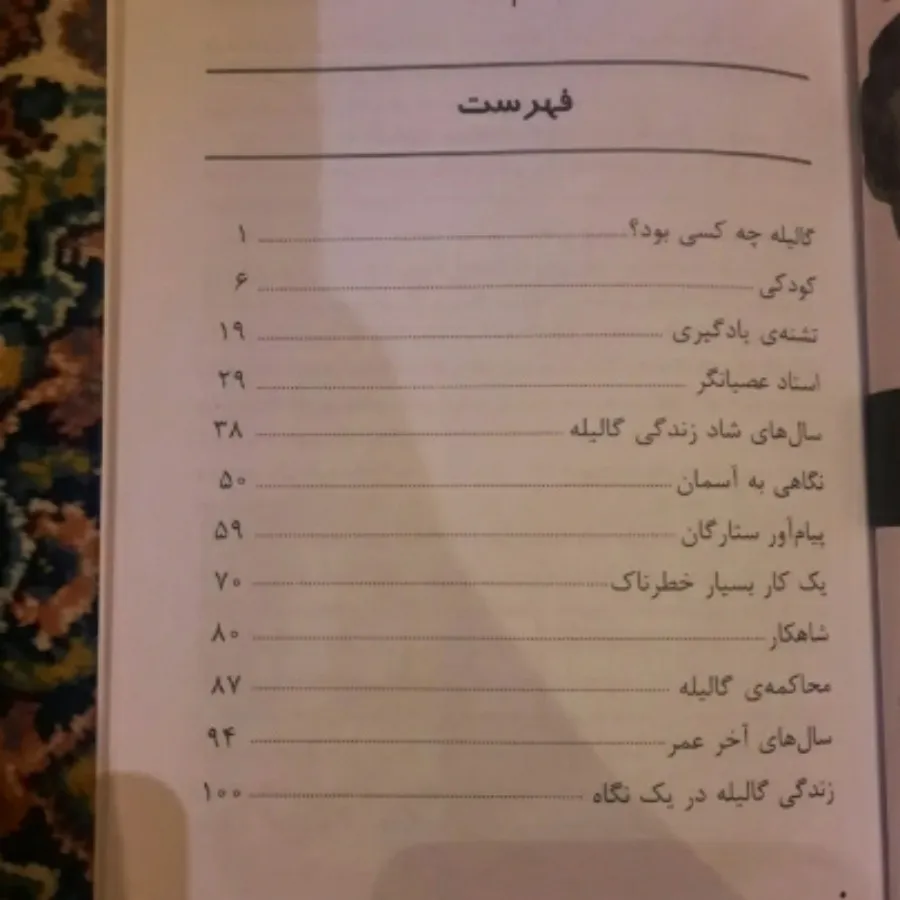 فهرست
گالیله چه کسی بود؟ ........ ۱
کودکی ........ ۶
تشنه‌ی یادگیری ........ ۱۹
استاد عصیانگر ........ ۲۹
سال‌های شاد زندگی گالیله ........ ۳۸
نگاهی به آسمان ........ ۵۰
پیام‌آور ستارگان ........ ۵۹
یک کار بسیار خطرناک ........ ۷۰
شاهکار ........ ۸۰
محاکمه‌ی گالیله ........ ۸۷
سال‌های آخر عمر ........ ۹۴
زندگی گالیله در یک نگاه ........ ۱۰۰